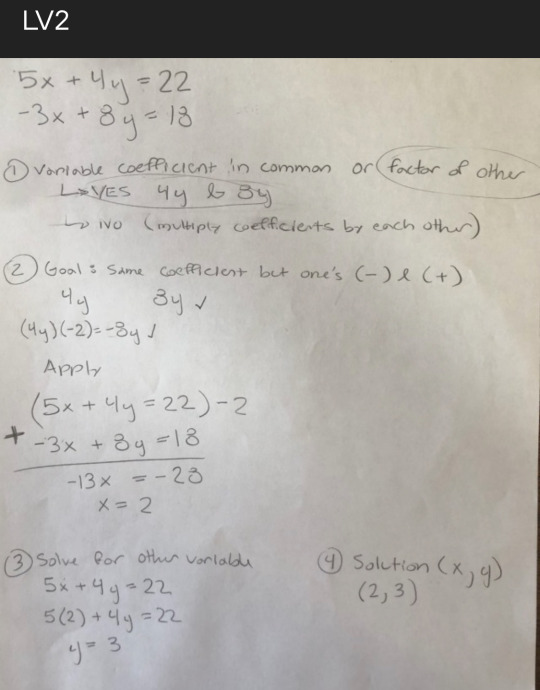 LV2
5x + 4y = 22
-3x + 8y = 18
① Variable coefficient in common or factor of other
↳ YES 4y & 8y
↳ NO (multiply coefficients by each other)
② Goal: Same coefficient but one's (-) & (+)
4y 8y ✓
(4y)(-2)=-8y ✓
Apply
(5x + 4y = 22) -2
+ -3x + 8y = 18
-13x = -28
x = 2
③ Solve for other variable
5x + 4y = 22
5(2) + 4y = 22
y = 3
④ Solution (x, y)
(2, 3)